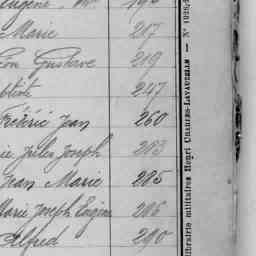 Eugène, M
Marie 217
Léon Gustave 219
247
Frédéric Jean 260
Jules Joseph 283
Jean Marie 285
Marie Joseph Eugène 286
Alfred 290
Librairie militaires Henri CHARLES-LAVAUZELLE — N° 1028